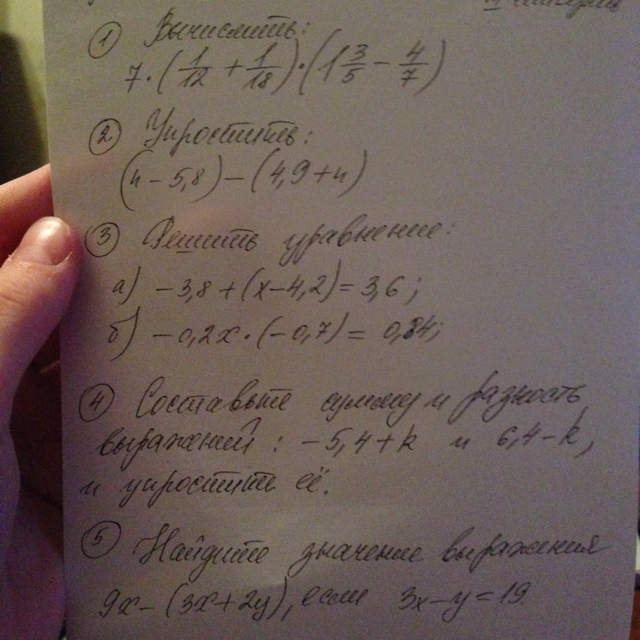 ① Вычислить:
7·(1/12 + 1/18)·(1 3/5 − 4/7)
② Упростить:
(n − 5,8) − (4,9 + n)
③ Решить уравнение:
а) −3,8 + (x − 4,2) = 3,6;
б) −0,2x·(−0,7) = 0,84;
④ Составьте сумму и разность
выражений: −5,4 + k и 6,4 − k,
и упростите её.
⑤ Найдите значение выражения
9x − (3x + 2y), если 3x − y = 19